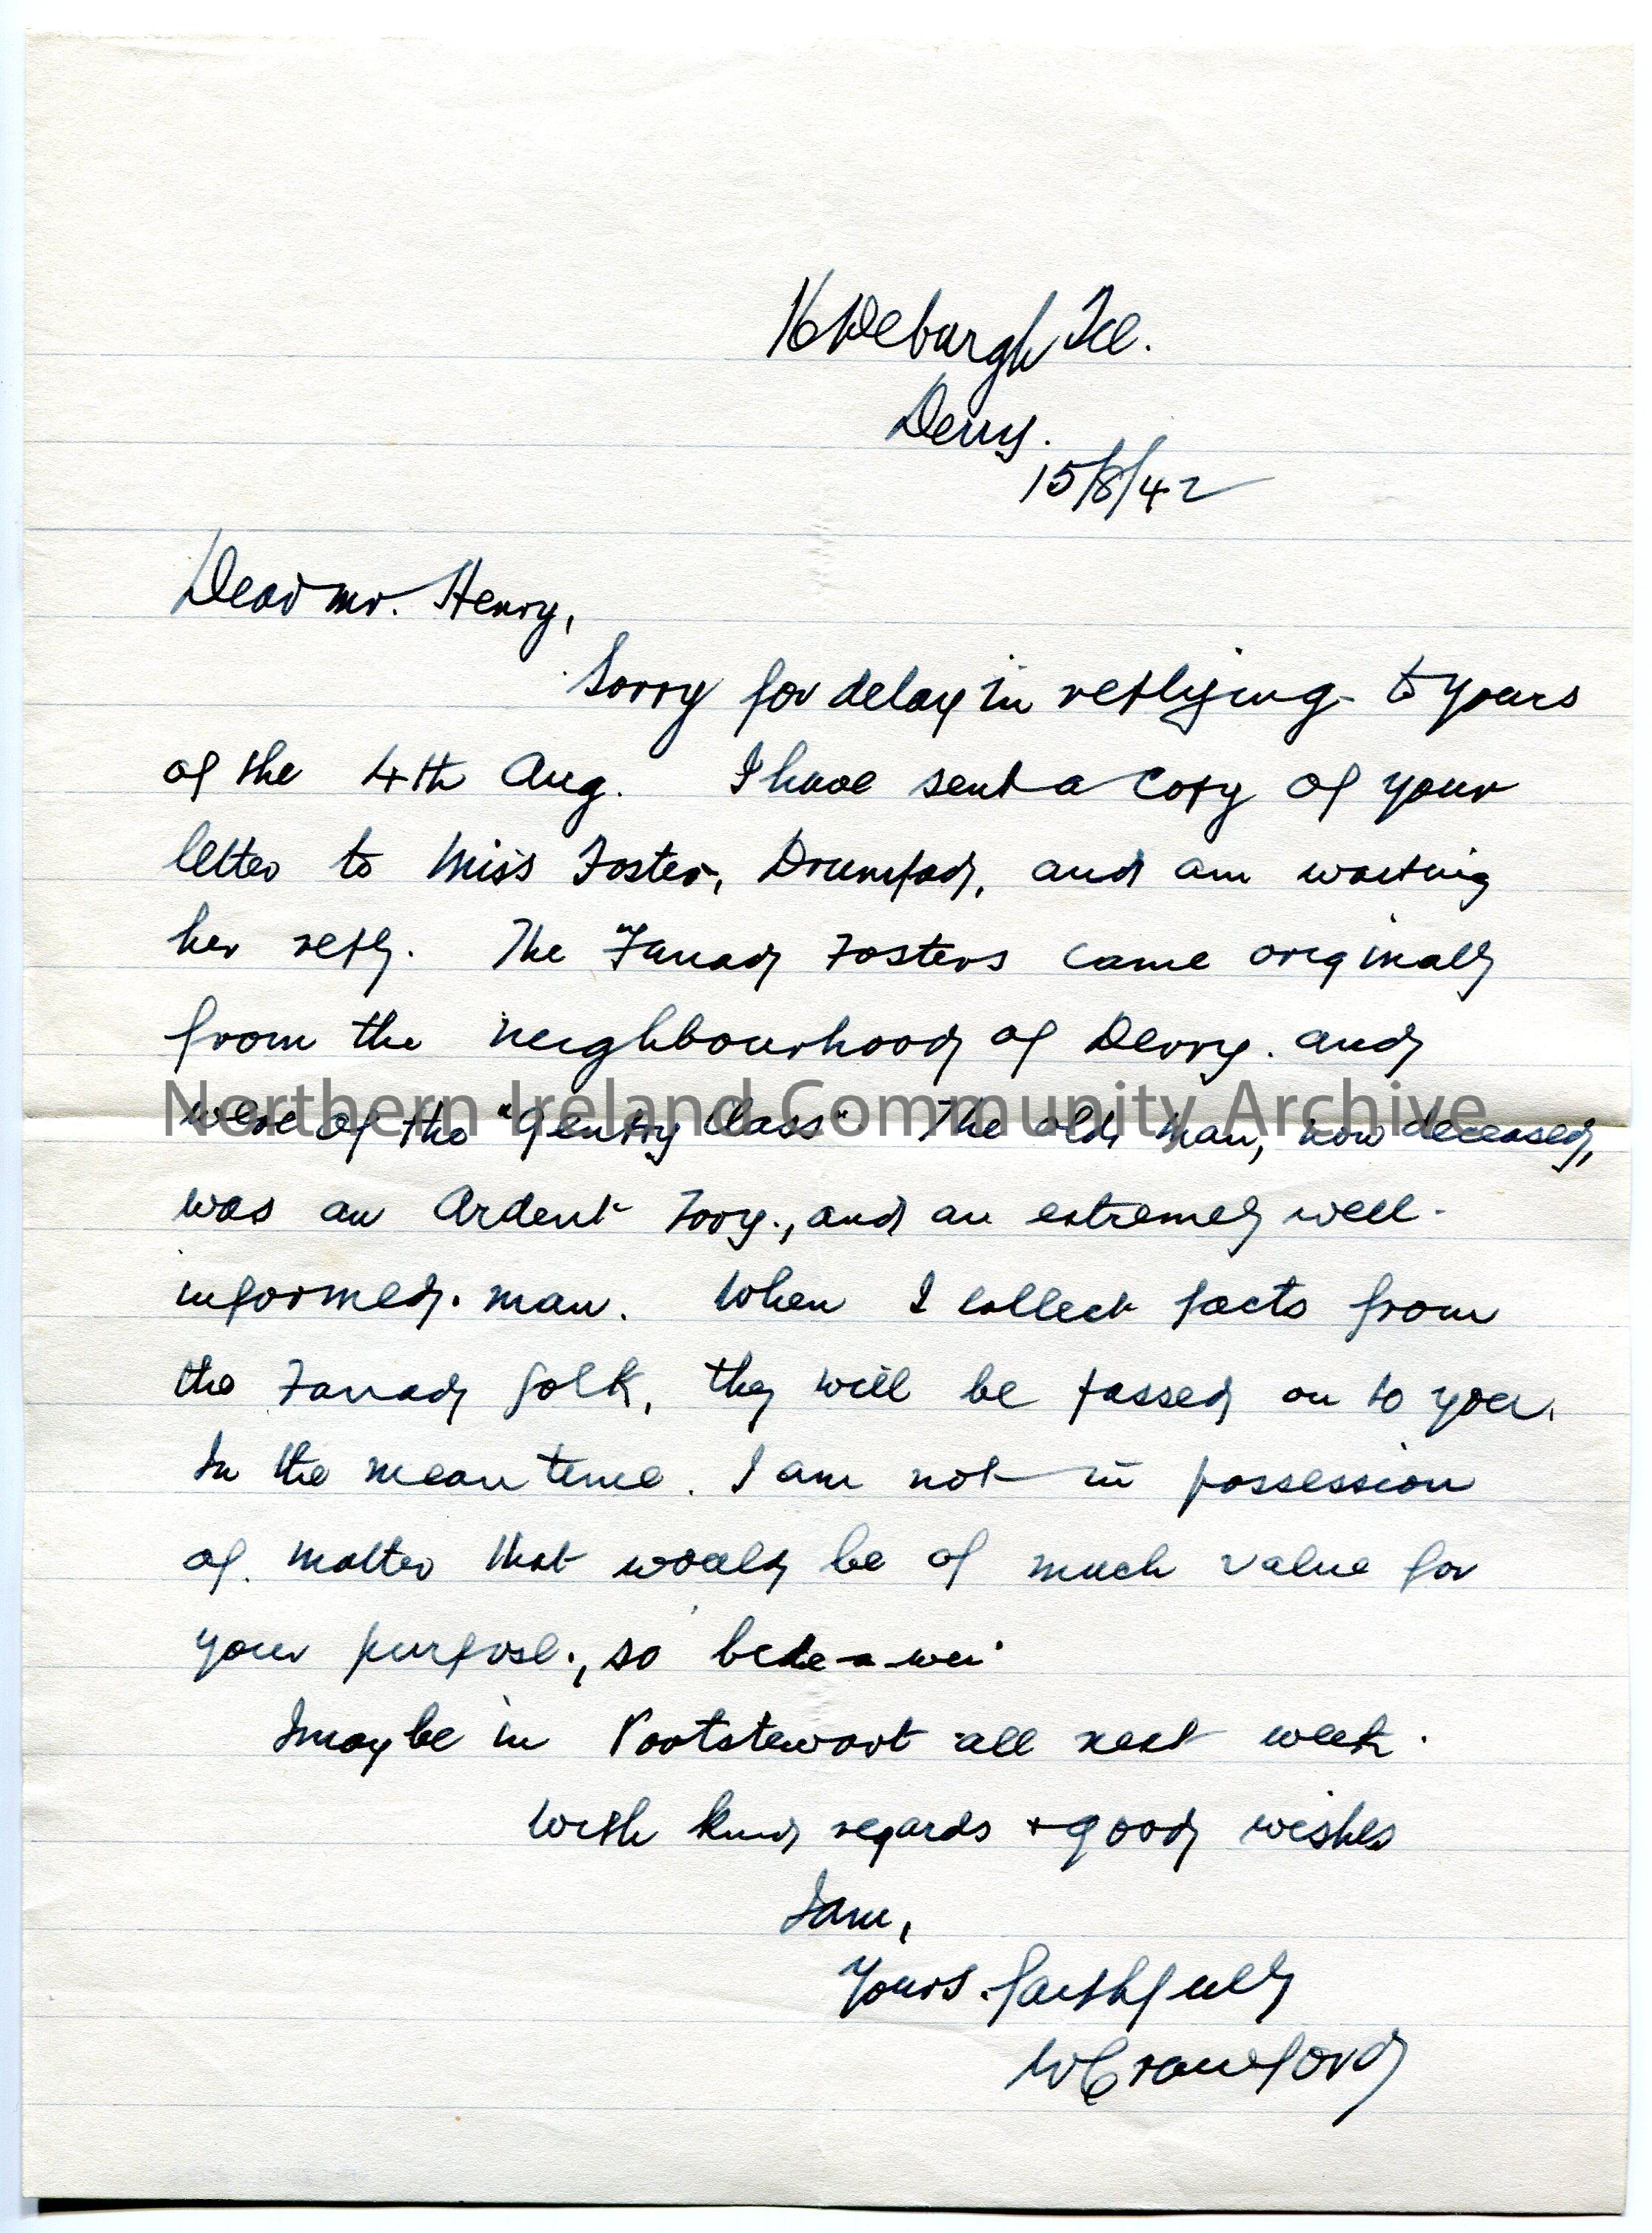 16 Deburgh Tce.
Derry.
15/8/42
Dear Mr. Henry,
Sorry for delay in replying to yours
of the 4th Aug. I have sent a copy of your
letter to Miss Foster, Drumfad, and am waiting
her reply. The Fanad Fosters came originally
from the neighbourhood of Derry. and
Northern Ireland Community Archive
were of the "Gentry Class". The old man, now deceased,
was an Ardent Tory., and an extremely well-
informed. man. When I collect facts from
the Fanad folk, they will be passed on to you.
In the mean time. I am not in possession
of. matter that would be of much value for
your purpose., so bide-a-wee.
I may be in Portstewart all next week.
With kind regards + good wishes
I am,
Yours faithfully
W Crawford